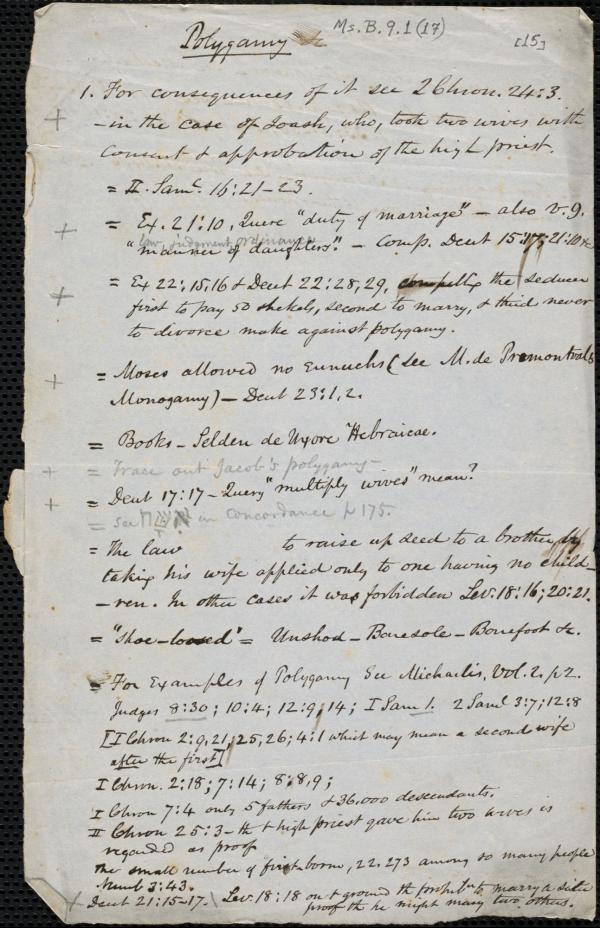 Polygamy Ms. B. 9. 1 (17) [15]
1. For consequences of it see 2 Chron. 24:3.
+ - in the case of Joash, who, took two wives with
consent & approbation of the high priest.
= II. Saml. 16:21-23.
= Ex. 21:10, Quere "duty of marriage" - also v. 9.
law, judgment, ordinance
+ "manner of daughters". - Comp. Deut 15:17; 21:10 &c
+ = Ex 22:, 15, 16 & Deut 22:28, 29, the seducer
first to pay 50 shekels, second to marry, & third never
to divorce make against polygamy.
+ = Moses allowed no Eunuchs (See M. de Premontvals
Monogamy) - Deut 23:1, 2.
= Books - Selden de Uxore Hebraicae.
+ = Trace out Jacob's polygamy -
+ = Deut 17:17 - Query "multiply wives" mean?
= See in concordance p 175.
= The law to raise up seed to a brother by
taking his wife applied only to one having no child-
-ren. In other cases it was forbidden Lev. 18:16; 20:21.
= "Shoe-loosed" = Unshod - Baresole - Barefoot &c.
= For Examples of Polygamy See Michaelis, Vol. 2. p 2.
Judges 8:30; 10:4; 12:9, 14; I Sam 1. 2 Saml 3:7; 12:8
[I Chron 2:9, 21, 25, 26; 4:1 which may mean a second wife
after the first]
I Chron. 2:18; 7:14; 8:8, 9;
I Chron 7:4 only 5 fathers & 36,000 descendants.
II Chron 25:3 - tht high priest gave him two wives is
regarded as proof
The small number of first-borne, 22,273 among so many people
Numb 3:43.
+ Deut 21:15-17. \ Lev. 18:18 on t ground tht to marry a sister
proof tht he might marry two others.